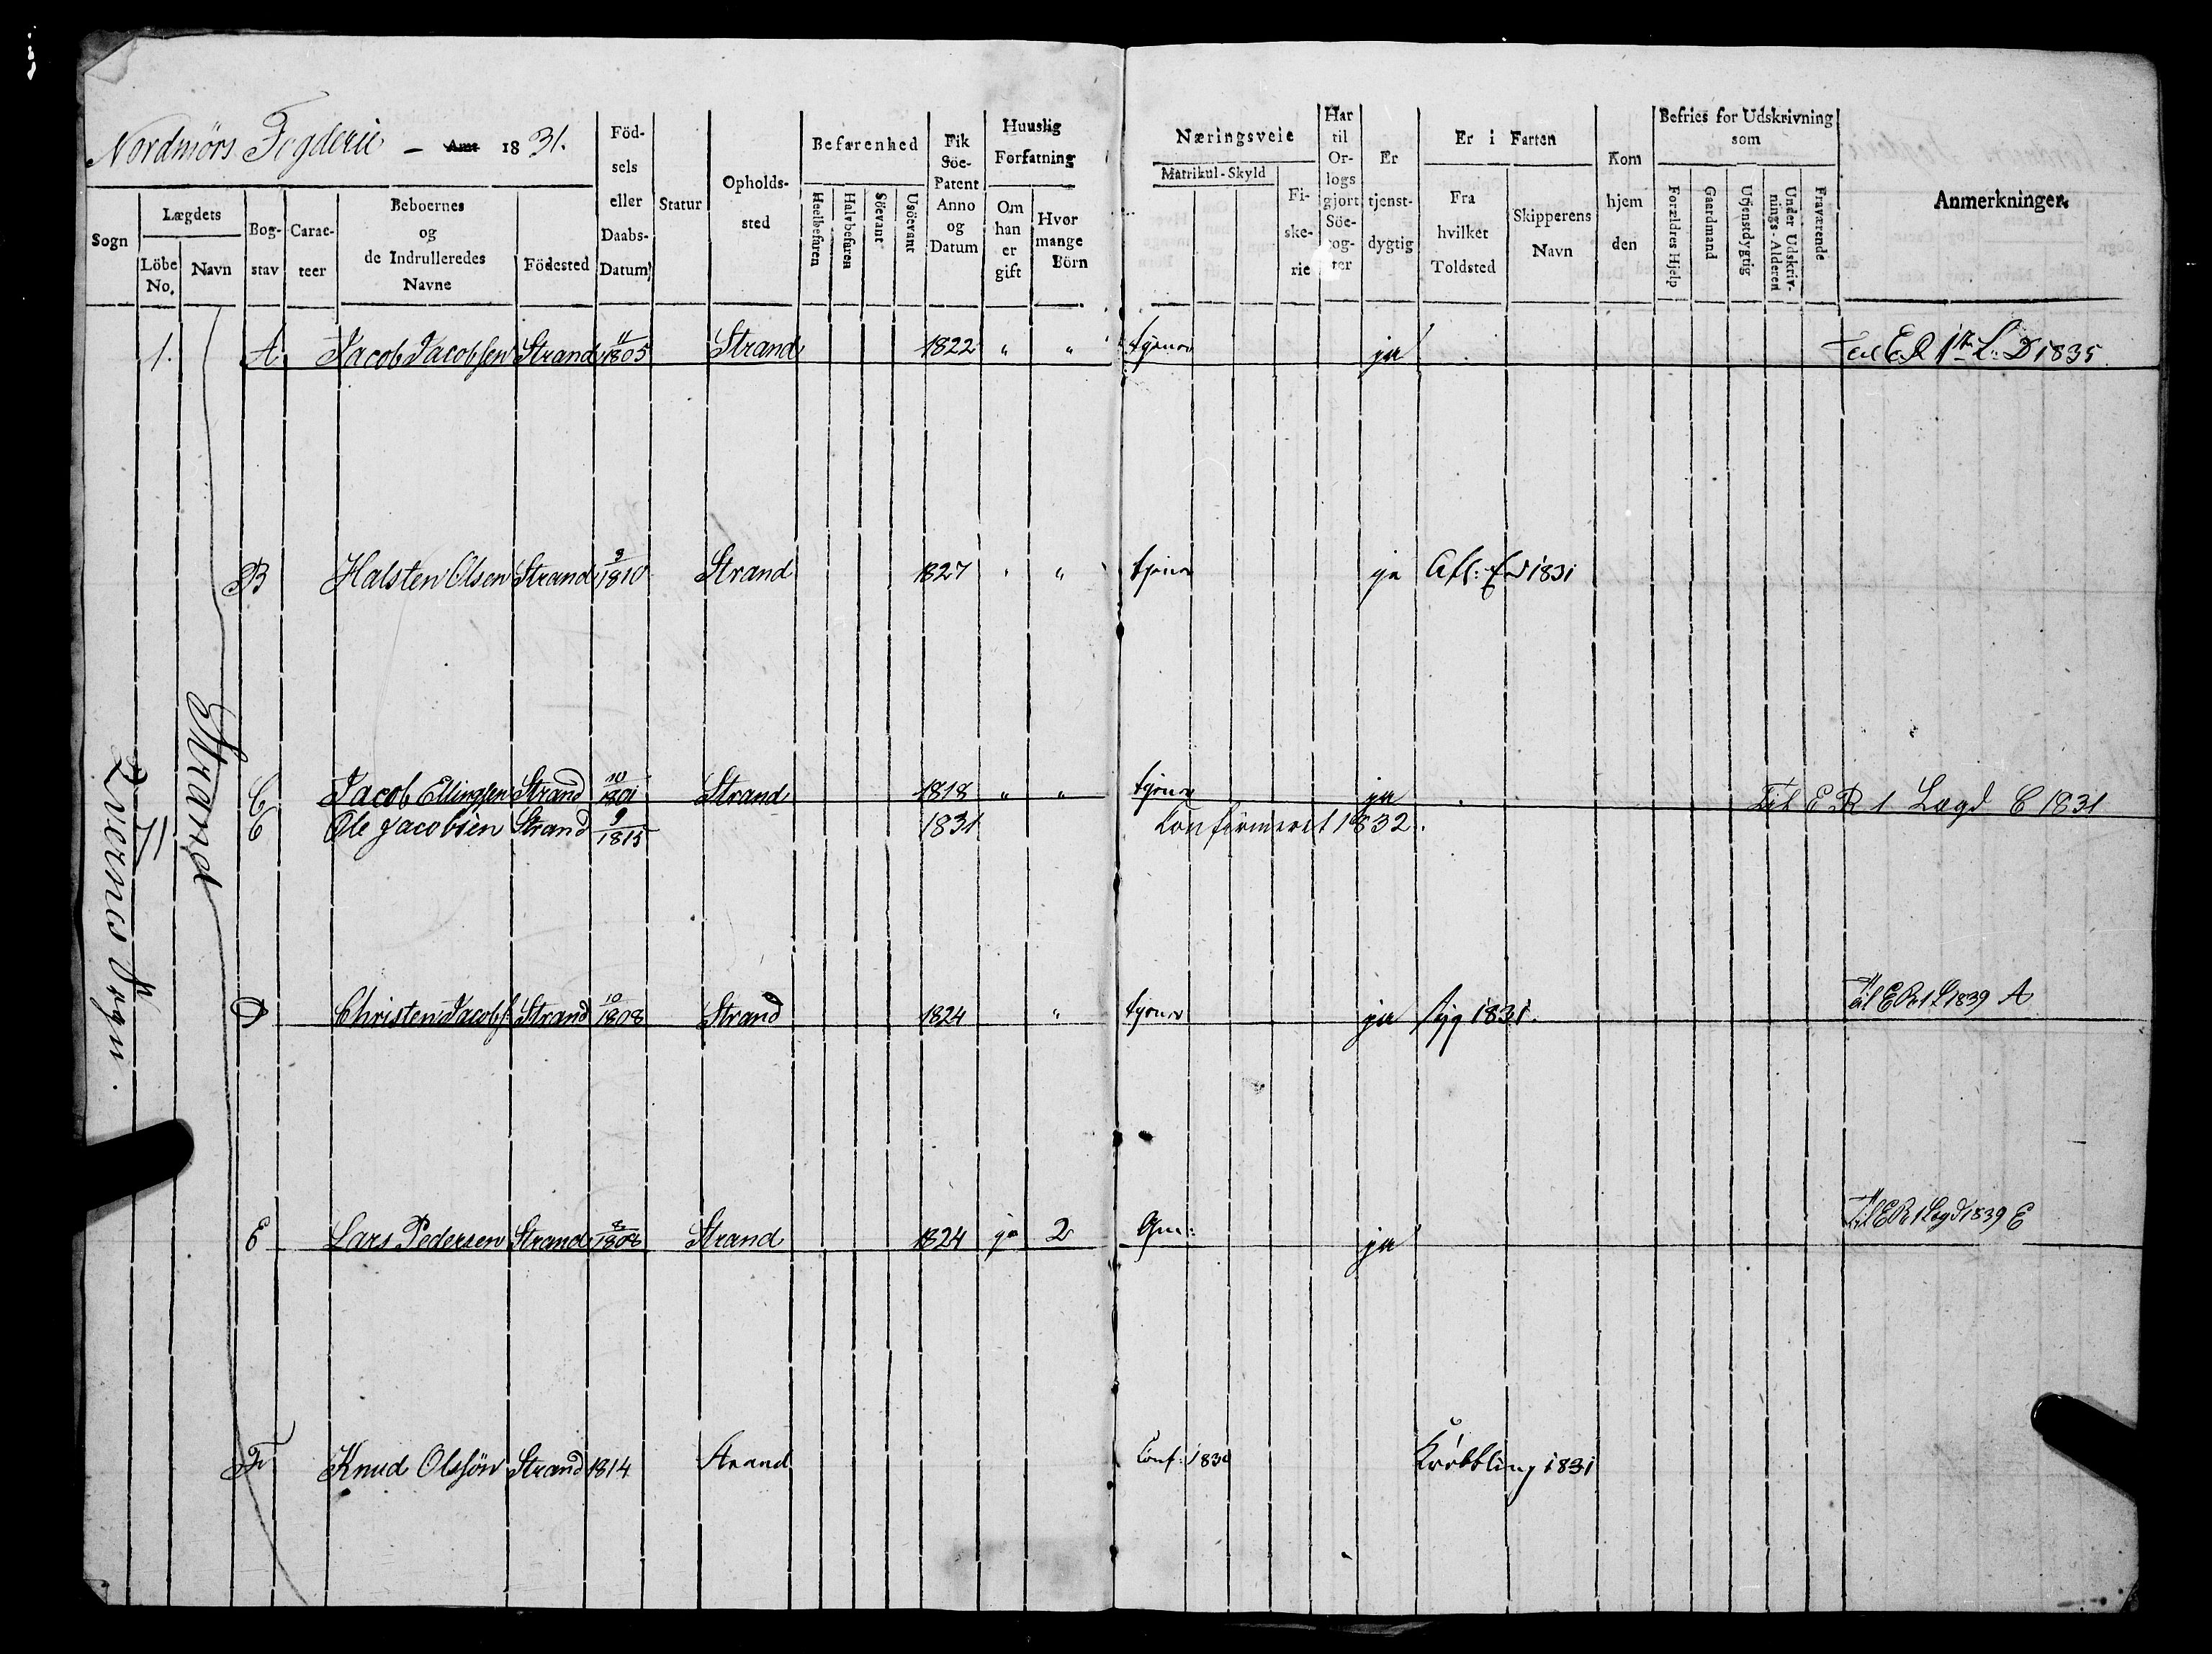 Nordmörs Fogderie - Amt 1831.
Sogn
Lægdets
Löbe No.
Navn
Bog-stav
Carac-teer
Beboernes og de Indrulleredes Navne
Födested
Föd-sels eller Daabs-Datum
Statur
Opholds-sted
Befarenhed
Heelbefaren
Halvbefaren
Söevant
Usöevant
Fik Söe-Patent Anno og Datum
Huuslig Forfatning
Om han er gift
Hvor mange Börn
Næringsveie
Matrikul-Skyld
Fi-ske-rie
Har til Or-logs gjort Söe-tog-ter
Er tjenst-dygtig
Er i Farten
Fra hvilket Toldsted
Skipperens Navn
Kom hjem den
Befries for Udskrivning som
Forældres Hjelp
Gaardmand
Utjenstdygtig
Under Udskriv-nings-Alderen
Fraværende
Anmerkninger.
Tverns Sogn.
Strand
1. A Jacob Jacobsen Strand 11/1805 Strand 1822 " " tjener ja Til E R 1ste L: D 1835
B Halsten Olsen Strand 9/1810 Strand 1827 " " tjener ja 1831
C Jacob Ellingsen Strand 10/1801 Strand 1818 " " tjener ja Til E R 1 Lægd C 1831
C Ole Jacobsen Strand 9/1815 1831 Confirmeret 1832.
D Christen Jacobs: Strand 10/1808 Strand 1824 " tjener ja syg 1831. Til E R 1 L 1839 A
E Lars Pedersen Strand 8/1808 Strand 1824 ja 2 Gm: ja Til E R 1 Lægd 1839 E
F Knud Olssön Strand 1814 Strand Conf: Kröbbling 1831